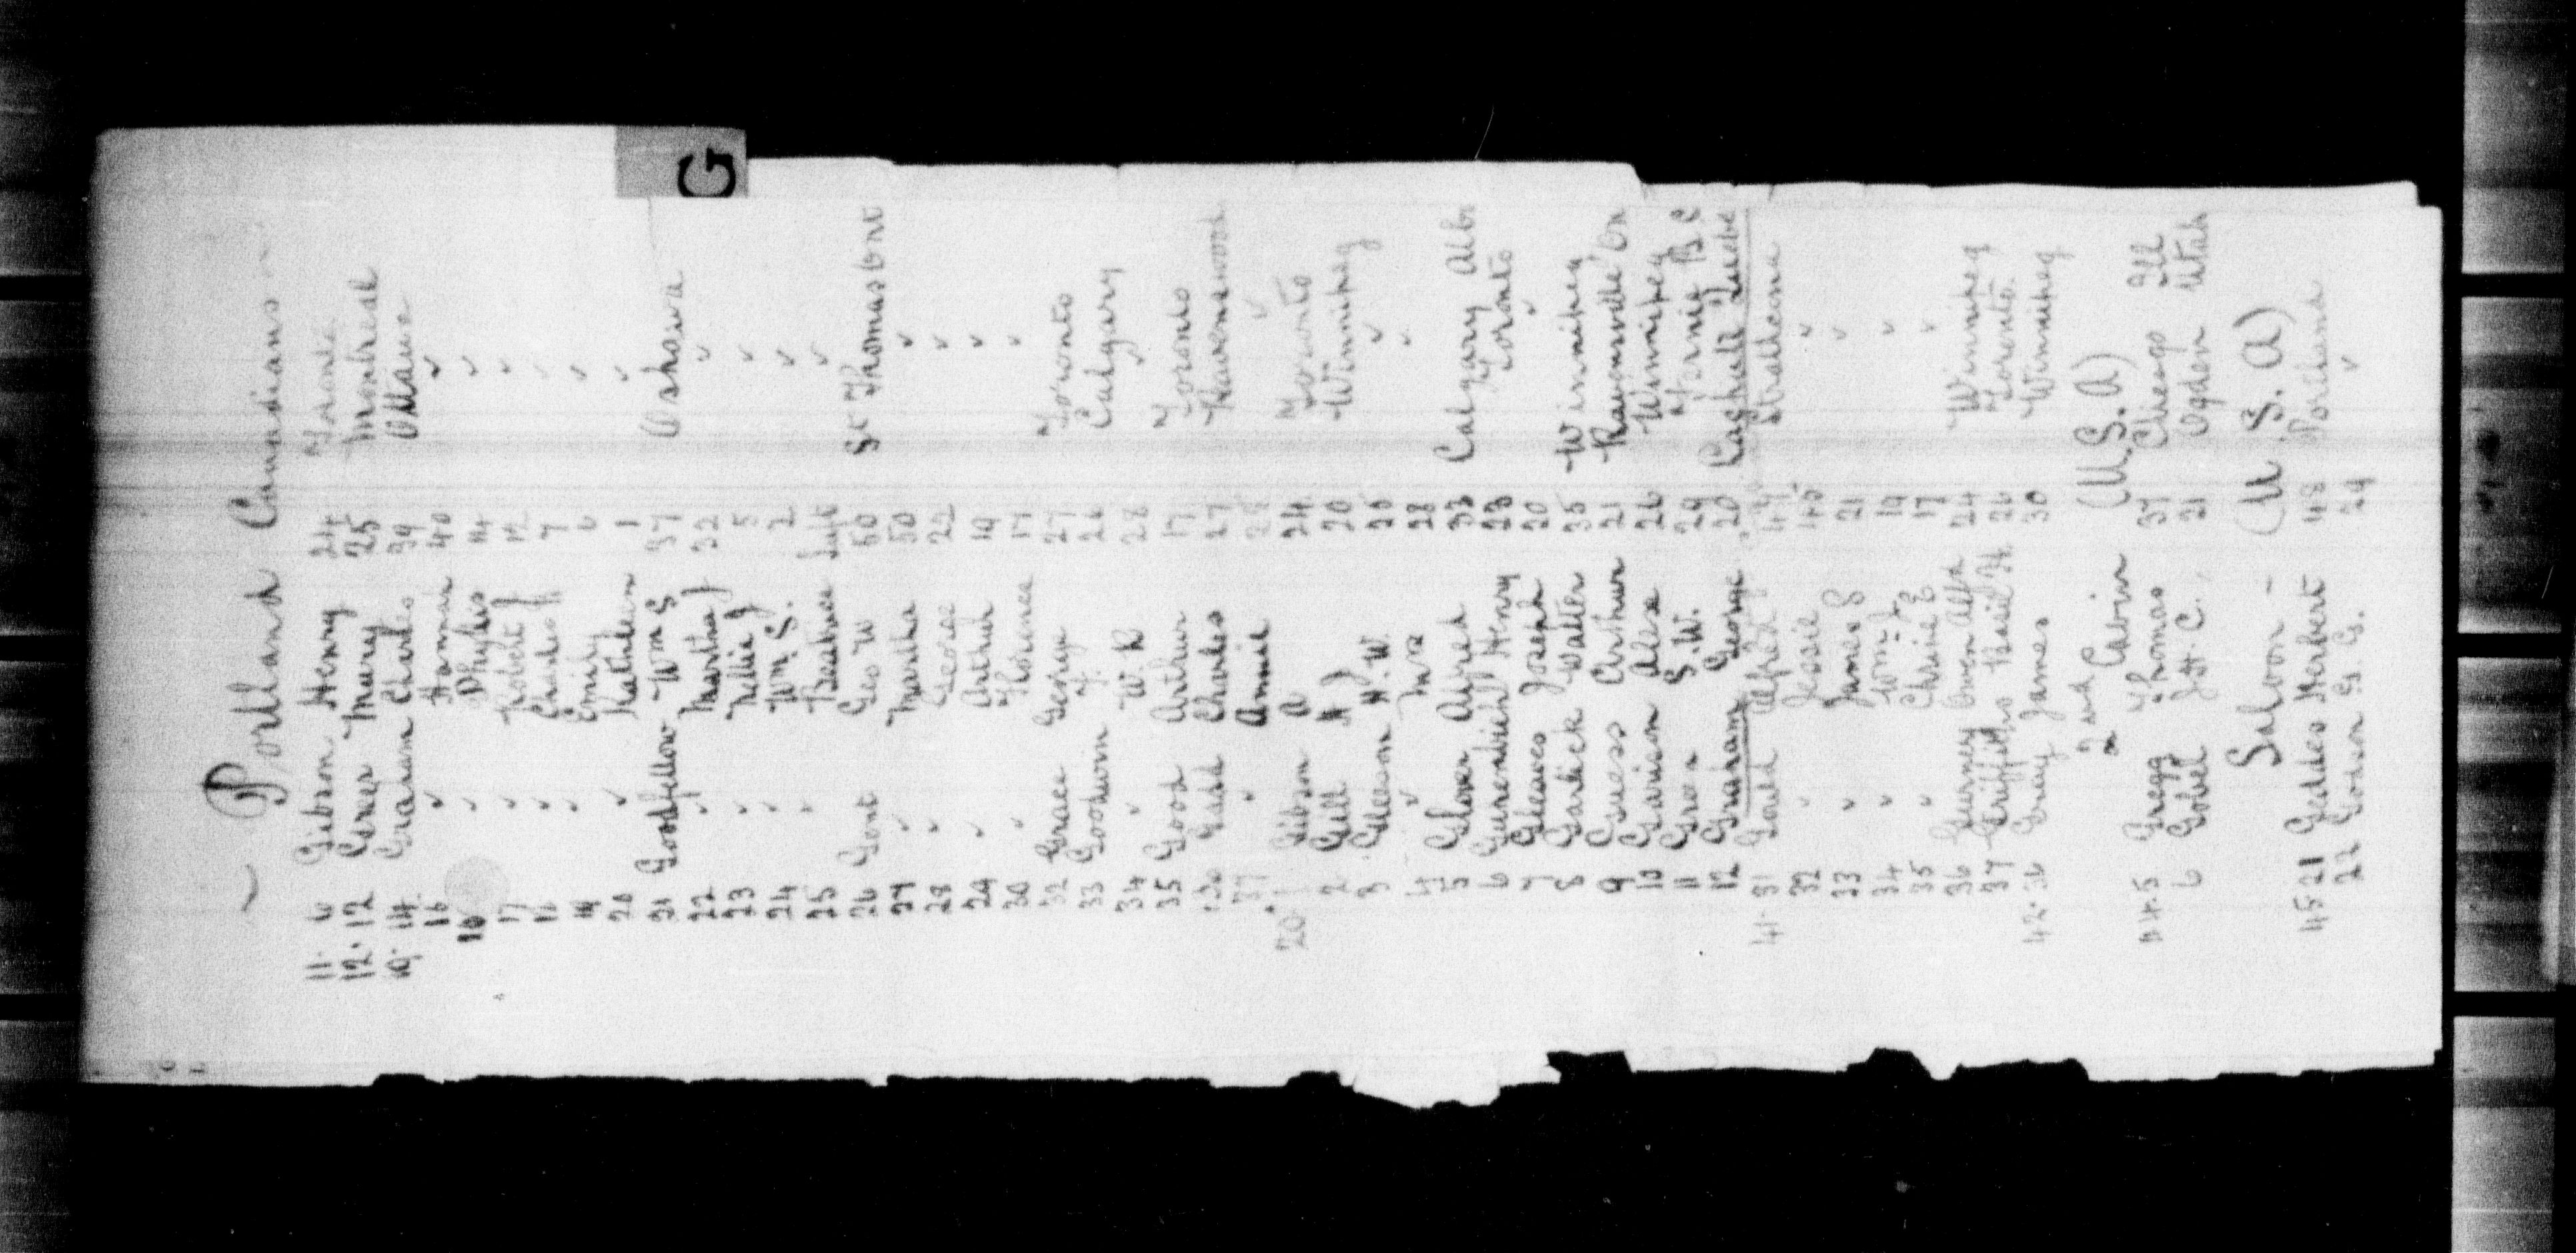 G
Portland Canadians
11. 6 Gibson Henry 24 Toronto
12. 12 Mary 25 Montreal
19. 14 Graham Charles 39 Ottawa
15 ✓ Hannah 40 ✓
16 ✓ Phyllis 14 ✓
17 ✓ Robert J 12 ✓
18 ✓ Charles H 7 ✓
19 ✓ Emily 6 ✓
20 ✓ Kathleen 1 ✓
21 Goodfellow Wm S 37 Oshawa
22 ✓ Martha J 32 ✓
23 ✓ Nellie J 5 ✓
24 ✓ Wm S. 2 ✓
25 ✓ Beatrice Inft ✓
26 Gont Geo W 50 St Thomas Ont
27 ✓ Martha 50 ✓
28 ✓ George 22 ✓
29 ✓ Arthur 19 ✓
30 ✓ Florence 17 ✓
32 Grace George 27 Toronto
33 Goodwin F. 26 Calgary
34 ✓ W. R 28 ✓
35 Good Arthur 17 Toronto
36 Charles 27
37 ✓ Annie 28 ✓
20. 1 Gibson A 24 Toronto
2 Gell H J 20 Winnipeg
3 Gilleeson H. W. 28 ✓
4 ✓ Mrs 28 ✓
5 Glover Alfred 33 Calgary Alb
6 Henry 23 Toronto
7 Gleaves Joseph 20 ✓
8 Garlick Walter 35 Winnipeg
9 Guess Arthur 21 On
10 Garrison Alex 26 Winnipeg
11 Green S. W. 29 Fernie B C
12 Graham George 20 Quebe
41. 31 Gould Alfred 49 Strathcona
32 ✓ Jessie 45 ✓
33 ✓ James S 21 ✓
34 ✓ Wm J 19 ✓
35 ✓ Chrine E 17 ✓
36 Gurney Owen Alfd 24 Winnipeg
37 Griffiths Basil H. 26 Toronto.
42. 36 Gray James 30 Winnipeg
2nd Cabin (U. S. A)
44. 5 Gregg Thomas 37 Chicago Ill
6 Gobel J. H C. 21 Ogden Utah
Saloon - (U. S. A)
45. 21 Geddes Herbert 48 Portland
22 Godson G. Cs. 29 ✓